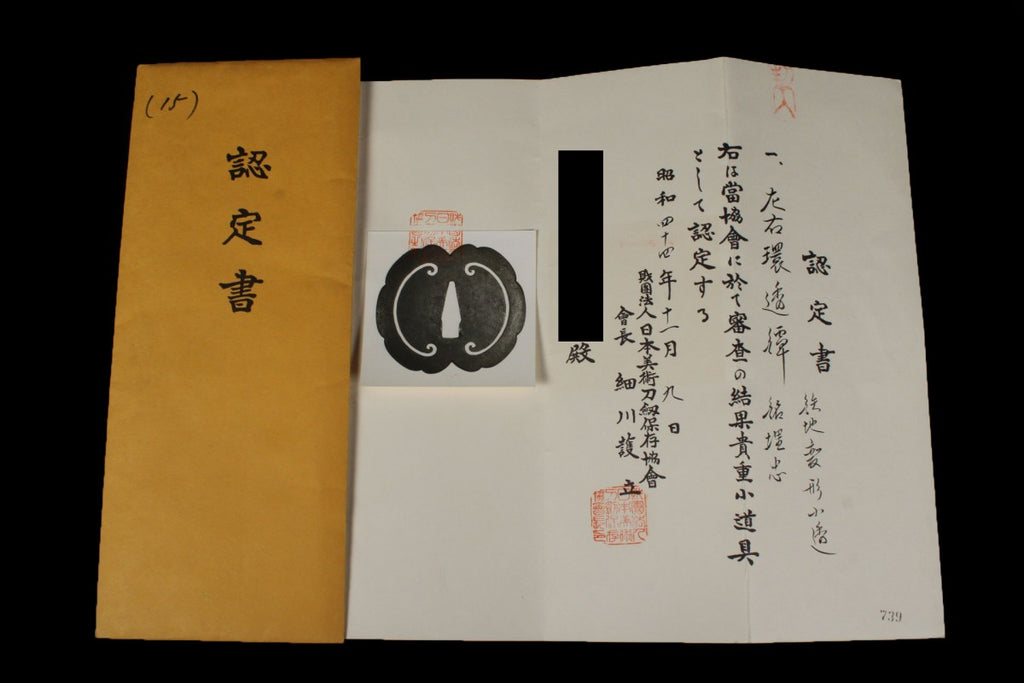 (15)
認定書
認定書
鉄地変形小透
一、左右環透鐔 銘埋忠
右は當協會に於て審査の結果貴重小道具
として認定する
昭和四十四年十一月九日
財團法人日本美術刀劍保存協會
會長 細川護立
殿
739